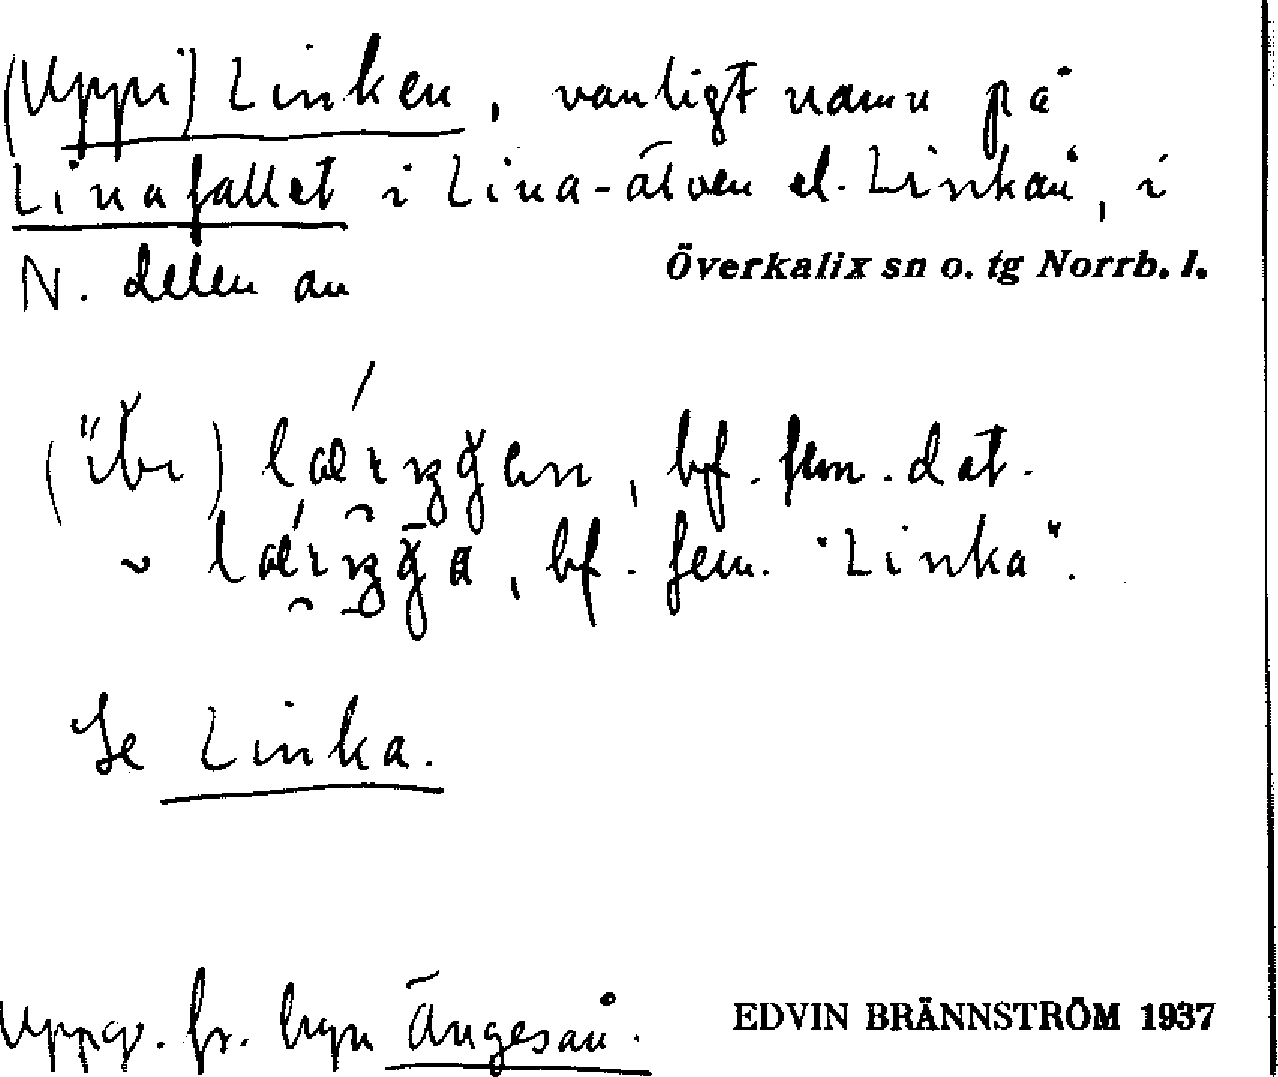 (Uppi) Linken, vanligt namn på
Linafallet i Lina-älven el. Linkån, i
N. delen av Överkalix sn o. tg Norrb. l.
bf. fem. dat.
bf. fem. "Linka".
Se Linka.
Uppg. fr. byn Ängesån.
EDVIN BRÄNNSTRÖM 1937